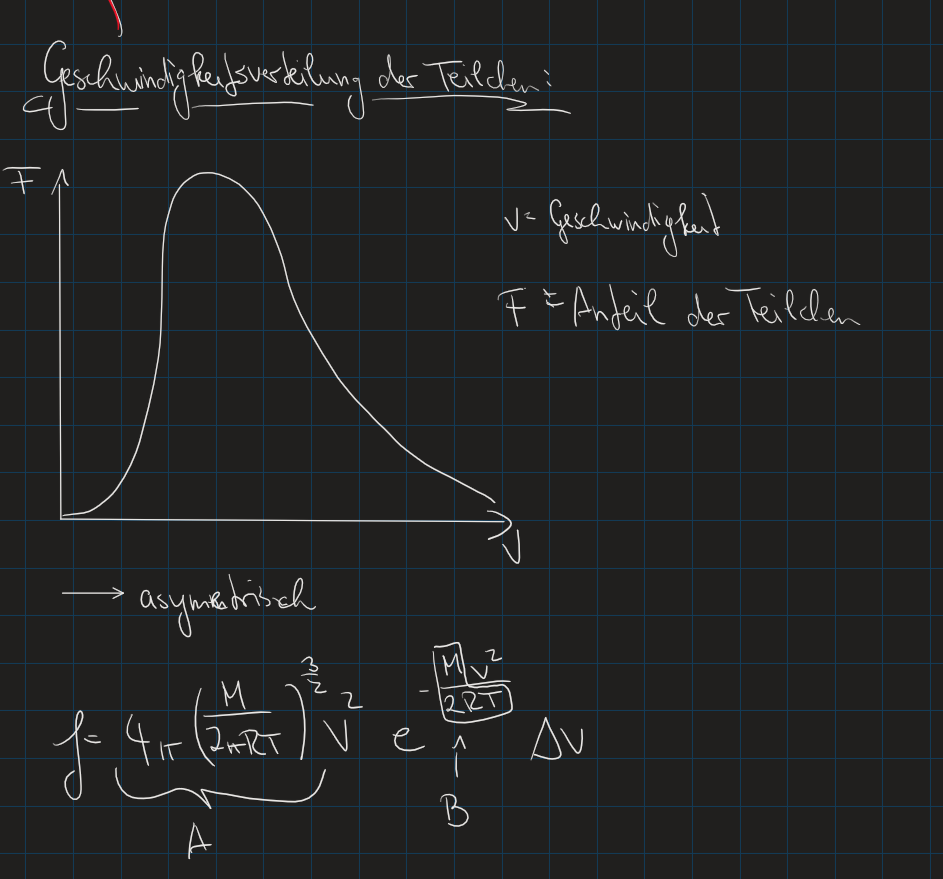 Geschwindigkeitsverteilung der Teilchen:
F
v = Geschwindigkeit
F ≙ Anteil der Teilchen
V
→ asymmetrisch
f = 4π (M / 2πRT)^(3/2) V² e^(-Mv² / 2RT) ΔV
A
B